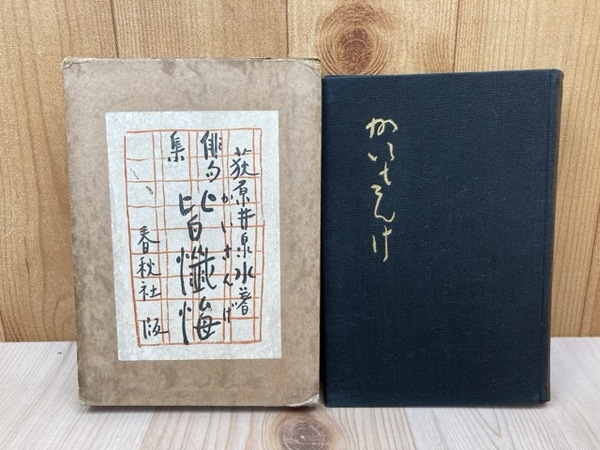 荻原井泉水著
俳句集
かいさんげ
皆懺悔
春秋社版
かいさんけ